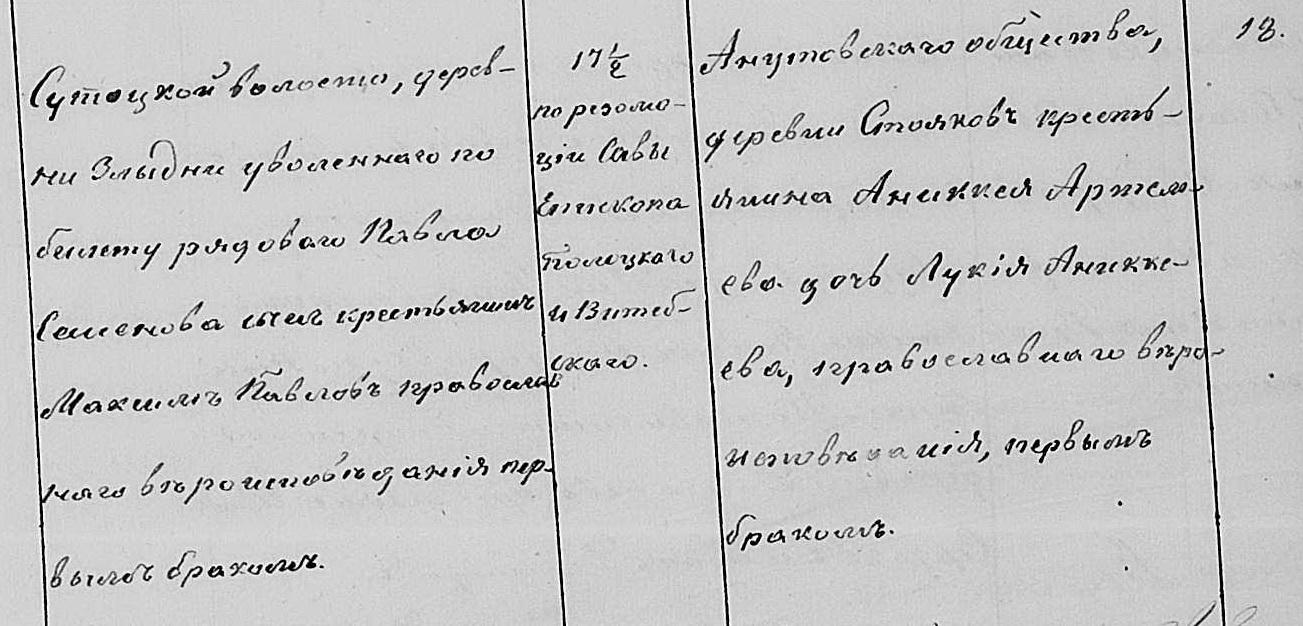 Сутоцкой волости, дерев-
ни Злыдни уволеннаго по
билету рядоваго Павла
Семенова сынъ крестьянинъ
Максимъ Павловъ православ
наго вѣроисповѣданія пер-
вымъ бракомъ.
17 1/2
по резолю-
ціи Савы
Епископа
Полоцкаго
и Витеб-
скаго.
общества,
деревни Стояковъ кресть-
янина Аникея Артемь-
ева дочь Лукія Аникие-
ева, православнаго вѣро-
исповѣданія, первымъ
бракомъ.
18.